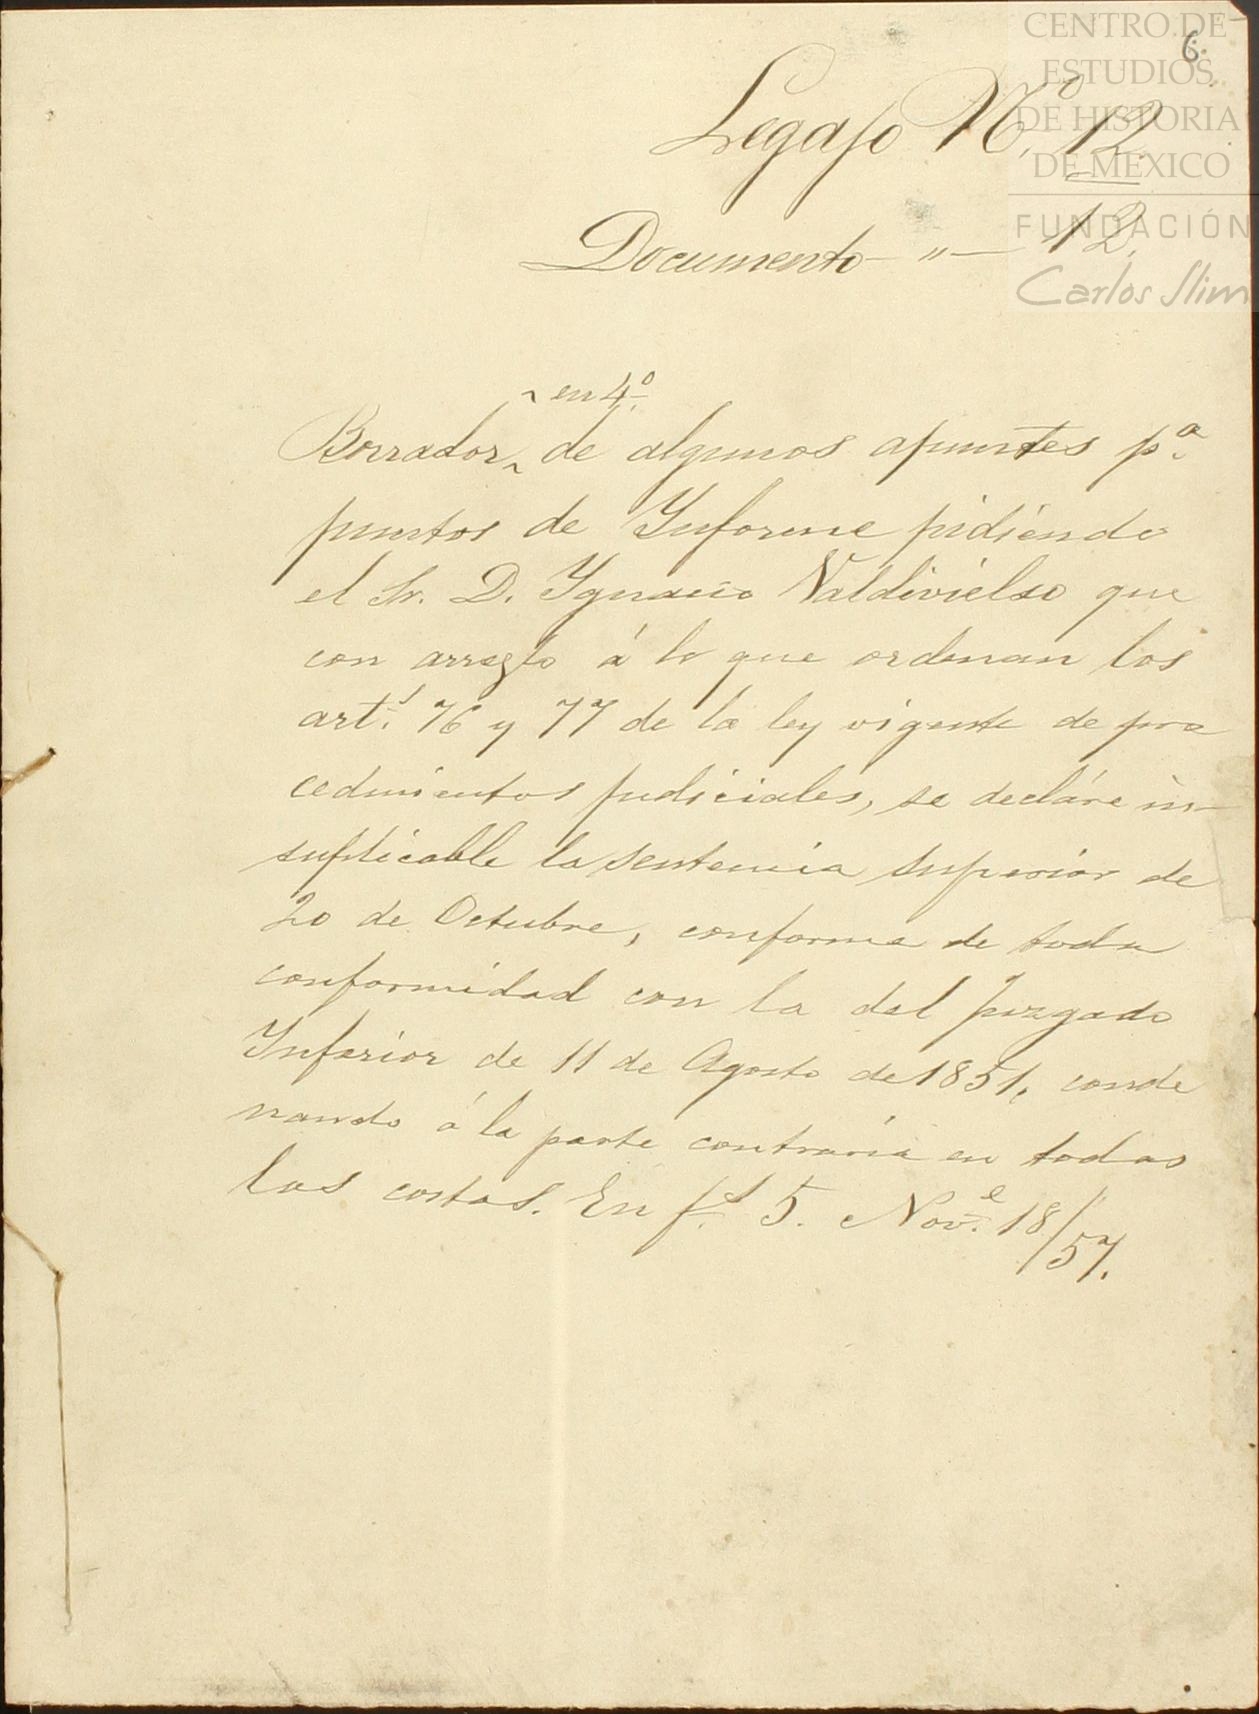 CENTRO DE
ESTUDIOS
DE HISTORIA
DE MEXICO
FUNDACIÓN
Carlos Slim
6.
Legajo N.º 12
Documento — " — 12.
en 4.º
Borrador de algunos apuntes p.ª
puntos de Informe pidiendo
el Sr. D. Ygnacio Valdivielso que
con arreglo á lo que ordenan los
art.s 76 y 77 de la ley vigente de pro
cedimientos judiciales, se declare in-
suplicable la sentencia superior de
20 de Octubre, conforme de toda
conformidad con la del Juzgado
Inferior de 11 de Agosto de 1851, conde
nando á la parte contraria en todas
las costas. En f.s 5. Nov.e 18/57.